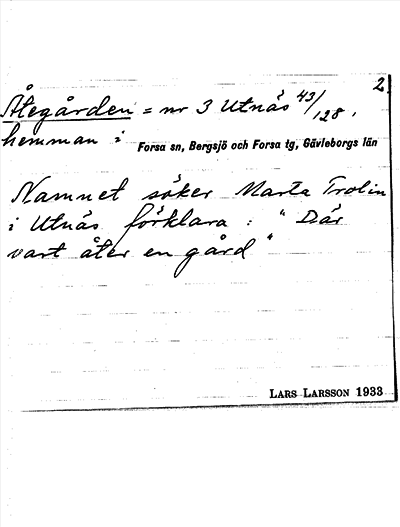 2
Åtegården = nr 3 Utnäs 43/128,
hemman i Forsa sn, Bergsjö och Forsa tg, Gävleborgs län
Namnet söker Marta Trolin
i Utnäs förklara: "Där
vart åter en gård"
LARS LARSSON 1933